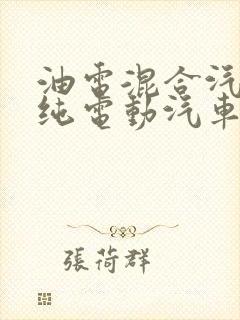 油電混合汽
純電動汽車
張荷群